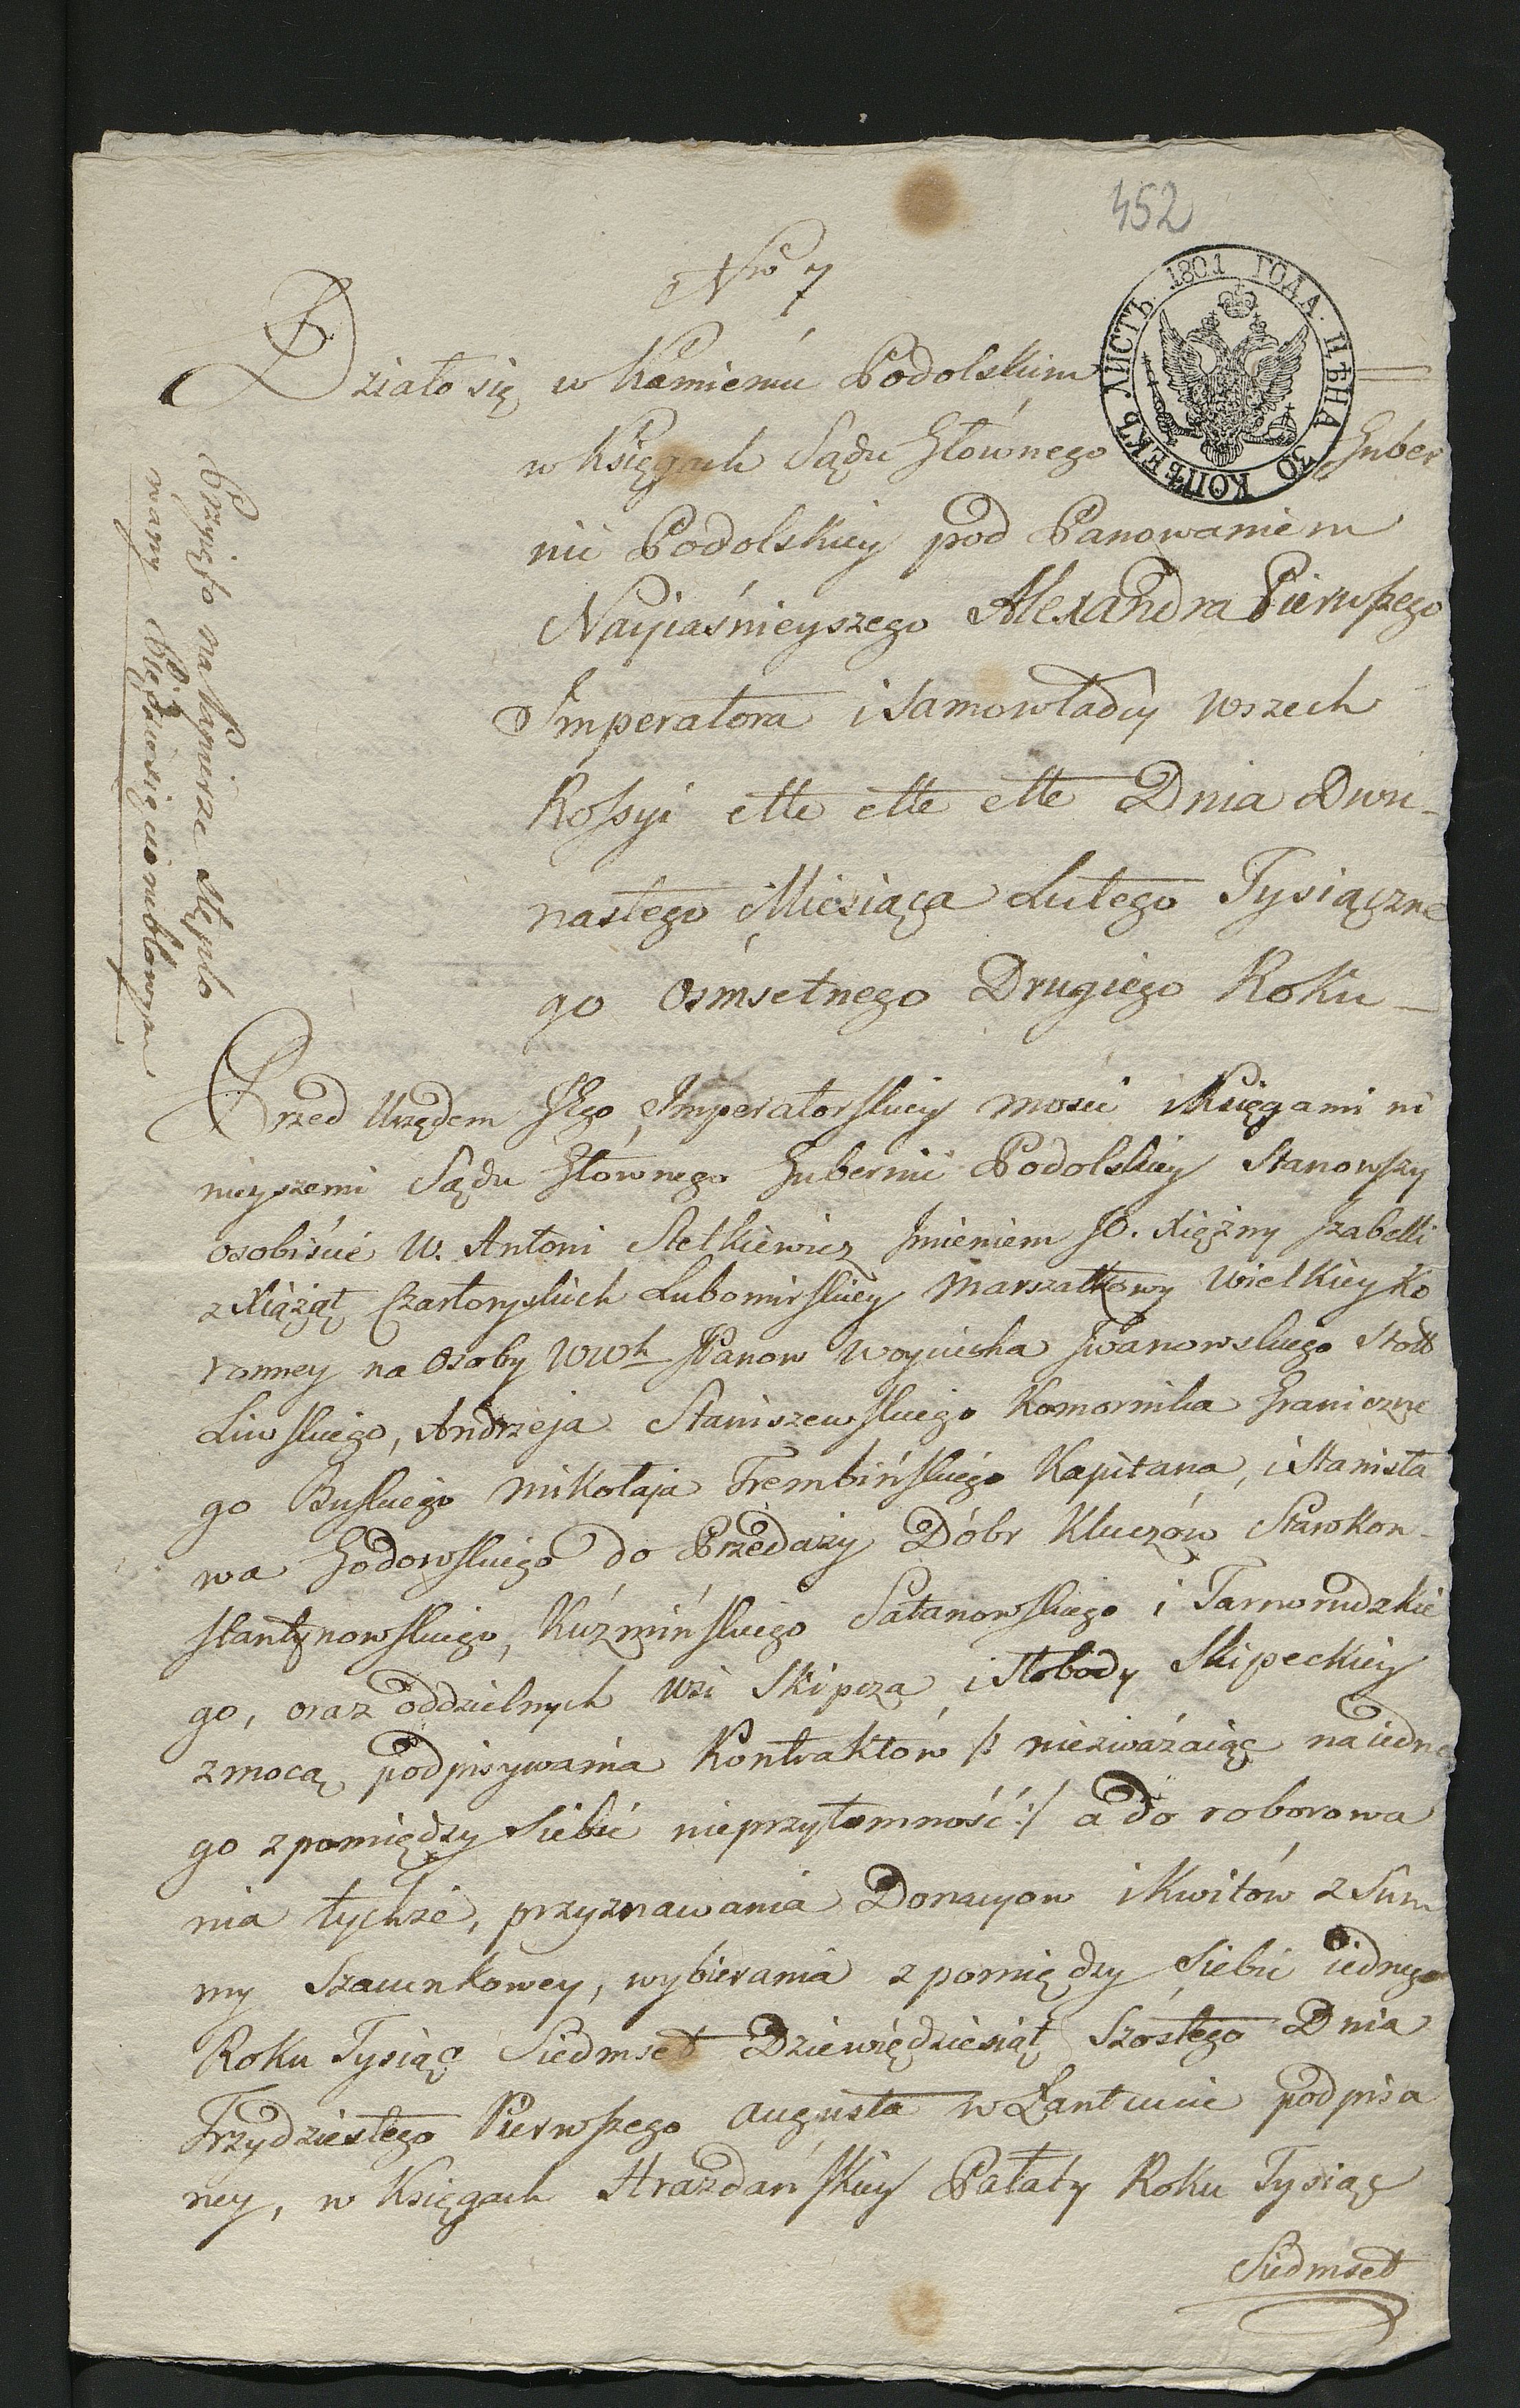 452
Nro 7
ЛИСТЪ 1801 ГОДА. ЦѢНА 30 КОПѢЕКЪ
Działo się w Kamieńcu Podolskim
w Księgach Sądu Głównego Guber
nii Podolskiey pod Panowaniem
Nayiaśnieyszego Alexandra Pierwszego
Imperatora i Samowładcy wszech
Rossyi ette ette ette Dnia Dwu-
nastego Miesiąca Lutego Tysiączne
go osmsetnego Drugiego Roku
Przyięto na Papierze Stęplo
wany
Przed Urzędem JEgo Imperatorskiey mości i Księgami ni
nieyszemi Sądu Głównego Gubernii Podolskiey Stanowszy
osobiście W. Antoni Stetkiewicz Imieniem JO. Xiężny Izabelli
z Xiążąt Czartoryskich Lubomirskiey Marszałkowy Wielkiey Ko
ronney na Osoby WWch JPanow Woyciecha Iwanowskiego Stoll
Liwskiego, Andrzeja Staniszewskiego Komornika Graniczne
go Buskiego Mikołaja Trembińskiego Kapitana, i Stanisła
wa Godowskiego do Przedaży Dóbr Kluczów Starokon-
stantynowskiego, Kuźmińskiego Satanowskiego i Tarnorudzkie
go, oraz oddzielnych Wsi Skipcza i Słobody Skipeckiey
z mocą podpisywania Kontraktów /: niezważaiąc na iedne
go z pomiędzy siebie nieprzytomność :/ a do roborowa
nia tychże, przyznawania Donacyow i Kwitów z Sum
my Szacunkowey, wybierania z pomiędzy siebie iednego
Roku Tysiąc Siedmset Dziewięćdziesiąt Szóstego Dnia
Trzydziestego Pierwszego Augusta w Łańcucie podpisa
ney, w Księgach Hrażdańskiey Pałaty Roku Tysiąc
Siedmset